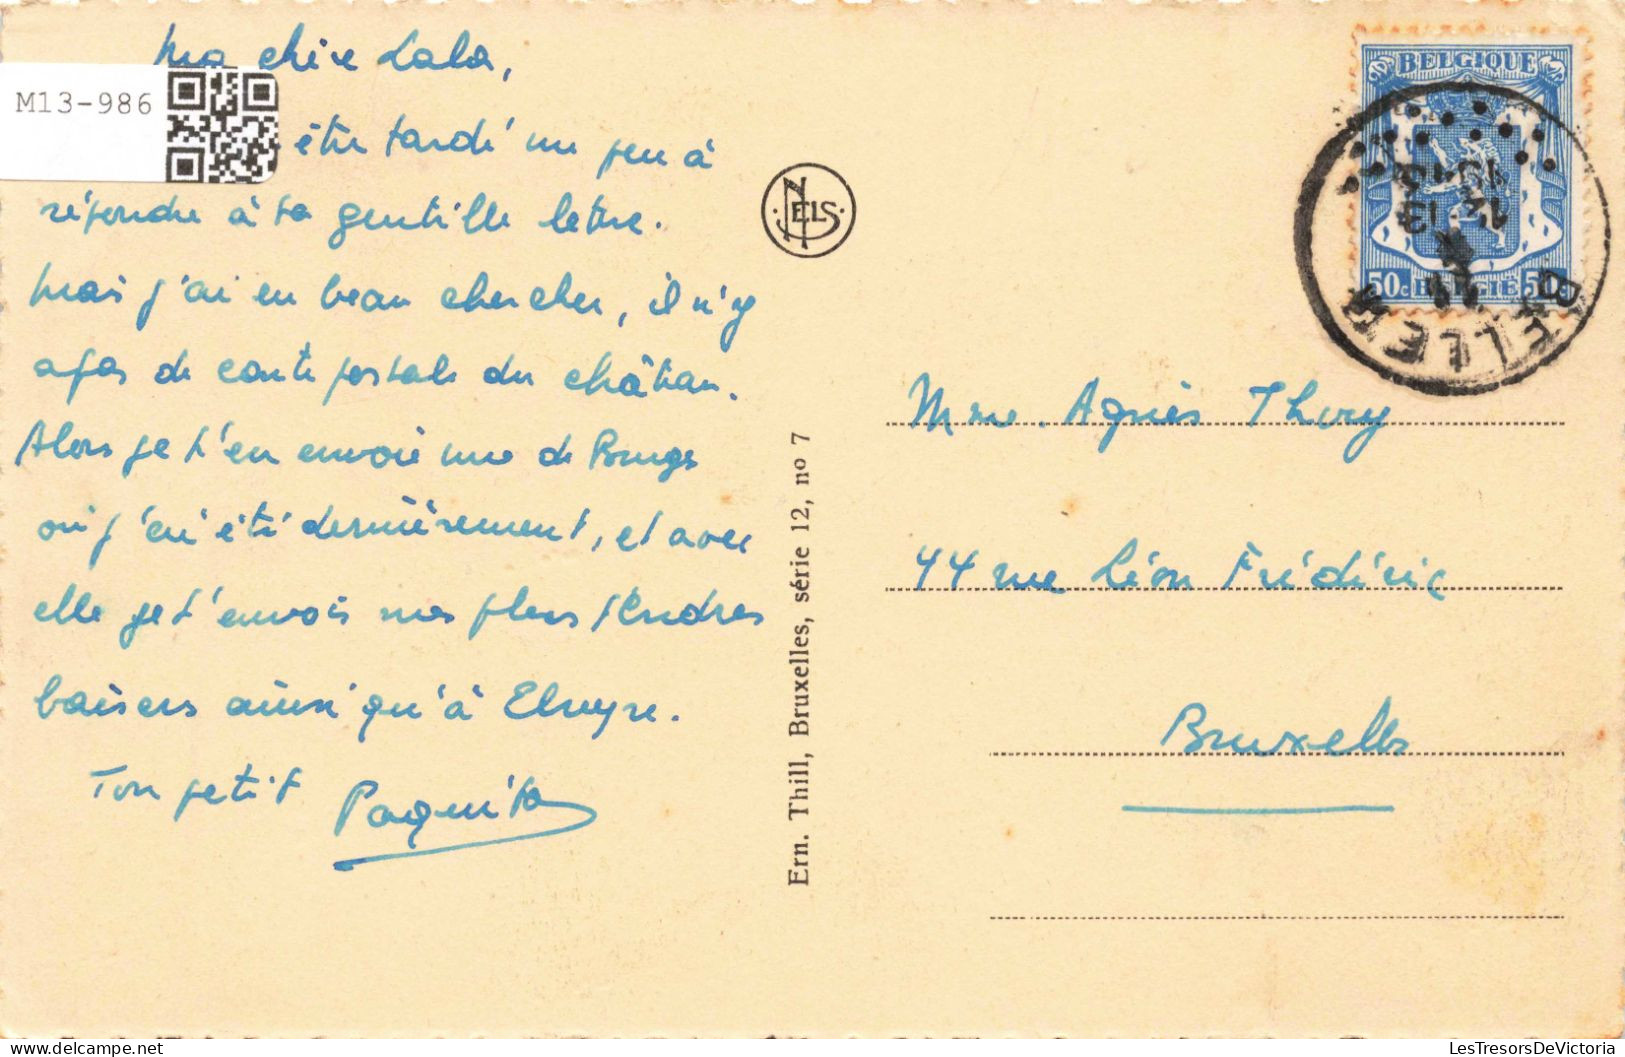 Ma chère Lala,
M13-986
être tardé un peu à
répondre à ta gentille lettre.
Mais j'ai eu beau chercher, il n'y
a pas de carte postale du château.
Alors je t'en envoie une de Bruges
où j'ai été dernièrement, et avec
elle je t'envois mes plus tendres
baisers ainsi qu'à Elvyre.
Ton petit Paquita
NELS
Ern. Thill, Bruxelles, série 12, no 7
BELGIQUE
50c BELGIË 50c
Mme. Agnès Thiry
44 rue Léon Frédéric
Bruxelles
LesTresorsDeVictoria